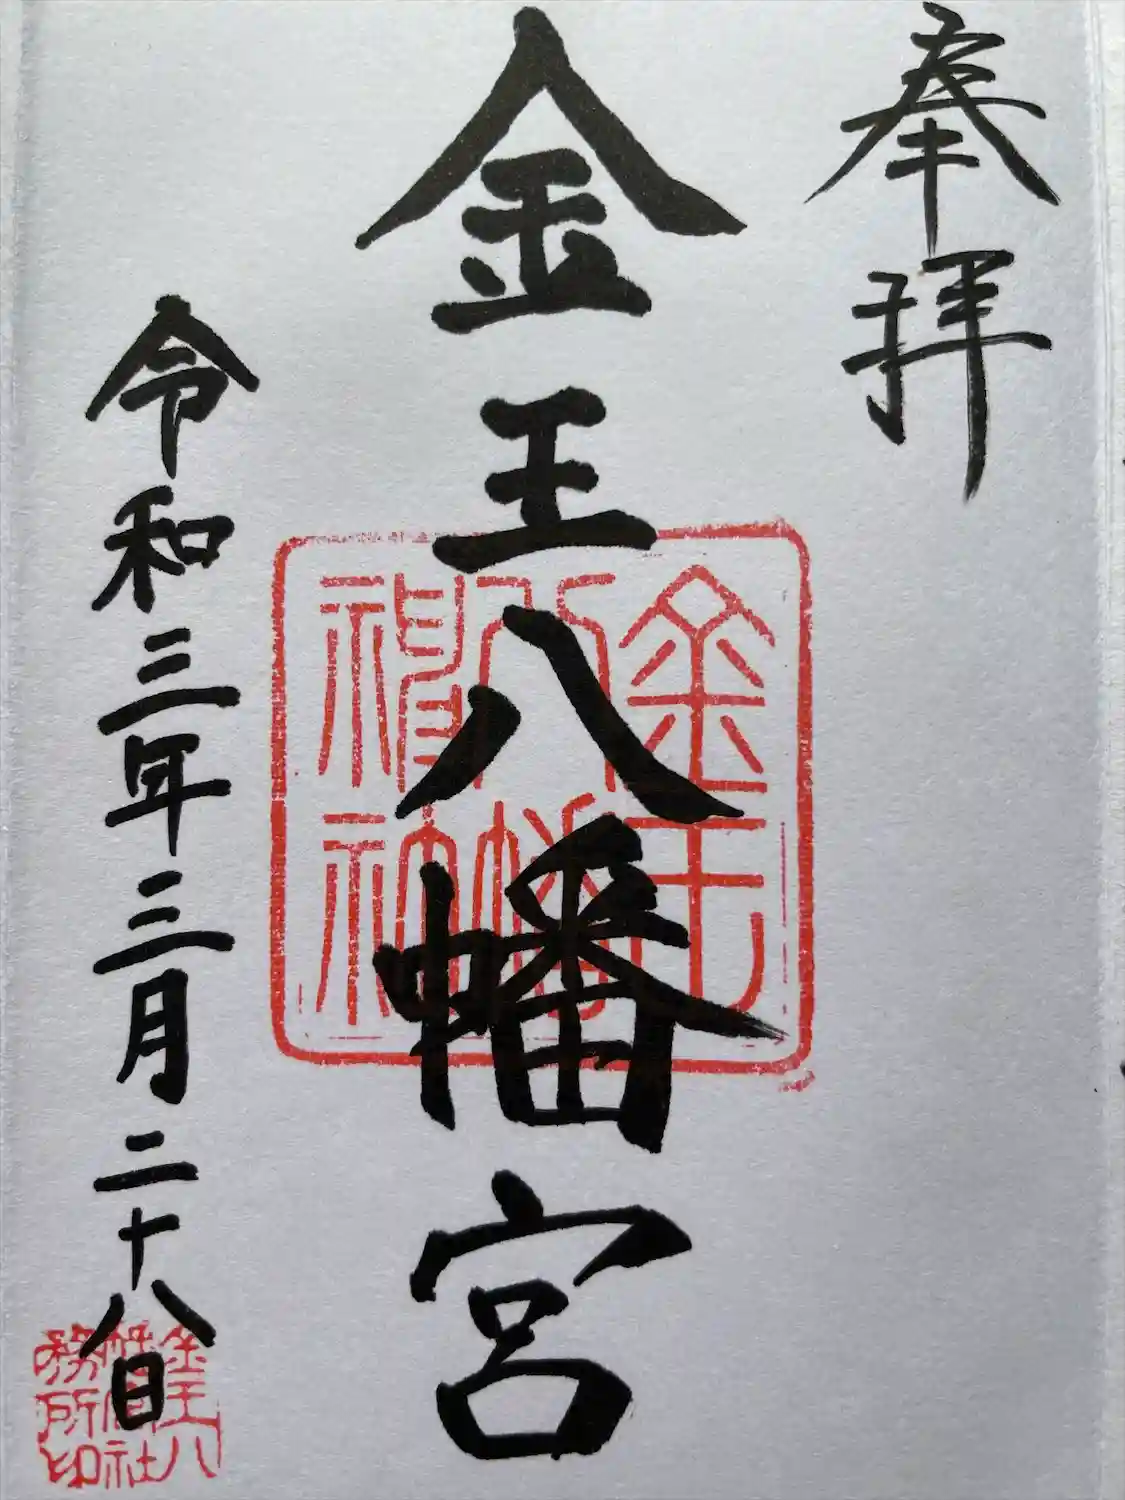 奉拝
金王八幡宮
令和三年三月二十八日
金王
八幡
神社
金王八
幡宮社
務所印